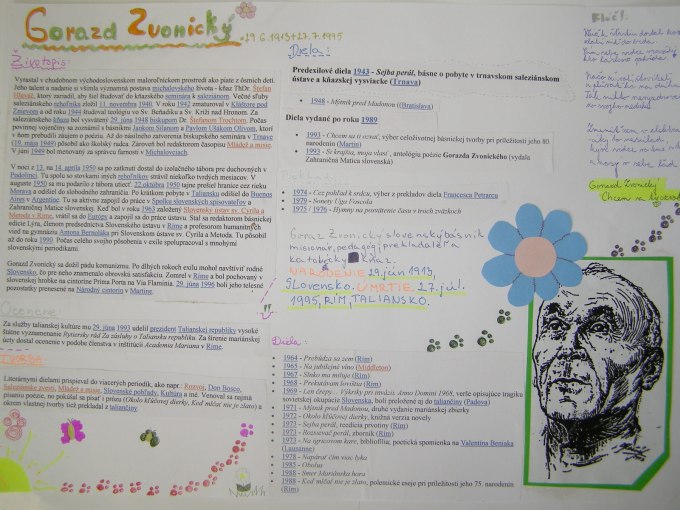 Gorazd Zvonický
*29.6.1913 + 27.7.1995
Životopis:
Vyrastal v chudobnom východoslovenskom maloroľníckom prostredí ako piate z ôsmich detí.
Jeho talent a nadanie si všimla významná postava michalovského života - kňaz ThDr. Štefan
Hlavač, ktorý zariadil, aby bol študentom
seminára k saleziánom. Večné sľuby
saleziánskeho rehoľníka zložil 11. novembra 1940. V roku 1942 maturoval v Kláštore pod
Znievom a od roku 1944 študoval teológiu vo Sv. Beňadiku a Sv. Kríži nad Hronom. Za
saleziánskeho kňaza bol vysvätený 29. júna 1948 biskupom Dr. Štefanom Trochtom. Počas
povinnej vojenčiny sa zoznámil s básnikmi Jankom Silanom a Pavlom Ušákom Olivom, ktorí
v ňom prebudili záujem o poéziu. Až do násilného zatvorenia biskupského seminára v Trnave
(19. mája 1949) pôsobil ako školský radca. Zároveň bol redaktorom časopisu Mládež a misie.
V júni 1949 bol menovaný za správcu farnosti v Michalovciach.
V noci z 13. na 14. apríla 1950 sa po zatknutí dostal do izolačného tábora pre duchovných v
Podolínci. Tu spolu so stovkami iných rehoľníkov strávil niekoľko tvrdých mesiacov. V
auguste 1950 sa mu podarilo z tábora utiecť. 22. októbra 1950 tajne prešiel hranice cez rieku
Moravu a odišiel do slobodného zahraničia. Po krátkom pobyte v Taliansku odišiel do Buenos
Aires v Argentíne. Tu sa aktívne zapojil do práce v Spolku slovenských spisovateľov a
Zahraničnej Matice slovenskej. Keď bol v roku 1963 založený Slovenský ústav sv. Cyrila a
Metoda v Ríme, vrátil sa do Európy a zapojil sa do práce ústavu. Stal sa redaktorom básnickej
edície Lýra, členom predsedníctva Slovenského ústavu v Ríme a profesorom humanitných
vied na gymnáziu Antona Bernoláka pri Slovenskom ústave sv. Cyrila a Metoda. Tu pôsobil
až do roku 1990. Počas celého svojho pôsobenia v exile spolupracoval s mnohými
slovenskými periodikami.
Gorazd Zvonický sa dožil pádu komunizmu. Po dlhých rokoch exilu mohol navštíviť rodné
Slovensko, čo pre neho znamenalo obrovskú satisfakciu. Zomrel v Ríme a bol pochovaný v
slovenskej hrobke na cintoríne Prima Porta na Via Flaminia. 29. júna 1996 boli jeho telesné
pozostatky prenesené na Národný cintorín v Martine.
Ocenenie
Za služby talianskej kultúre mu 29. júna 1993 udelil prezident Talianskej republiky vysoké
štátne vyznamenanie Rytiersky rád Za zásluhy o Taliansku republiku. Za šírenie mariánskej
úcty dostal ocenenie v podobe členstva v inštitúcii Academia Mariana v Ríme.
TVORBA
Literárnymi dielami prispieval do viacerých periodík, ako napr.: Rozvoj, Don Bosco,
Saleziánske zvesti, Mládež a misie, Slovenské pohľady, Kultúra a iné. Venoval sa najmä
písaniu poézie, no pokúšal sa písať i prózu (Okolo kľúčovej dierky, Keď mlčať nie je zlato) a
okrem vlastnej tvorby tiež prekladal z taliančiny.
Diela:
Predexilové diela 1943 - Sejba perál, básne o pobyte v trnavskom saleziánskom
ústave a ku kňazskej vysviacke (Trnava)
1948 - Mýtnik pred Madonou (Bratislava)
Diela vydané po roku 1989
1993 - Chcem sa ti ozvať, výber celoživotnej básnickej tvorby pri príležitosti jeho 80.
narodenín (Martin)
1993 - Si krajšia, moja vlasť, antológia poézie Gorazda Zvonického (vydala
Zahraničná Matica slovenská)
Preklady
1974 - Cez pokľad k srdcu, výber z prekladov diela Francesca Petrarcu
1979 - Sonety Uga Foscola
1975 / 1976 - Hymny na posvätenie času v troch zväzkoch
Gorazd Zvonický slovenský básnik
misionár, pedagóg, prekladateľ a
katolícky kňaz.
NARODENIE 29. jún 1913,
Slovensko. ÚMRTIE 27. júl.
1995, RÍM, TALIANSKO.
Diela:
1964 - Prebúdza sa zem (Rím)
1965 - Na jubilejnú vlnu (Middleton)
1967 - Slnko mu miluje (Rím)
1968 - Prekutávam lôvštiu (Rím)
1969 - Len črepy... Výkriky pri mŕtvici Anno Domini 1968, verše opisujúce tragiku
sovietskej okupácie Slovenska, boli preložené aj do taliančiny (Padova)
1971 - Mýtnik pred Madonou, druhé vydanie mariánskej zbierky
1972 - Okolo kľúčovej dierky, knižná verzia novely
1972 - Sejba perál, reedícia prvotiny (Rím)
1973 - Rozsievač perál, zborník (Rím)
1973 - Na ugrackom kare, bibliofília; poetická spomienka na Valentína Beniaka
(Lausanne)
1978 - Napárať čím viac lyka
1985 - Obolus
1988 - Smer Mariánska hora
1988 - Keď mlčať nie je zlato, polemické eseje pri príležitosti jeho 75. narodenín
(Rím)
Kľúč!
Gorazd Zvonický